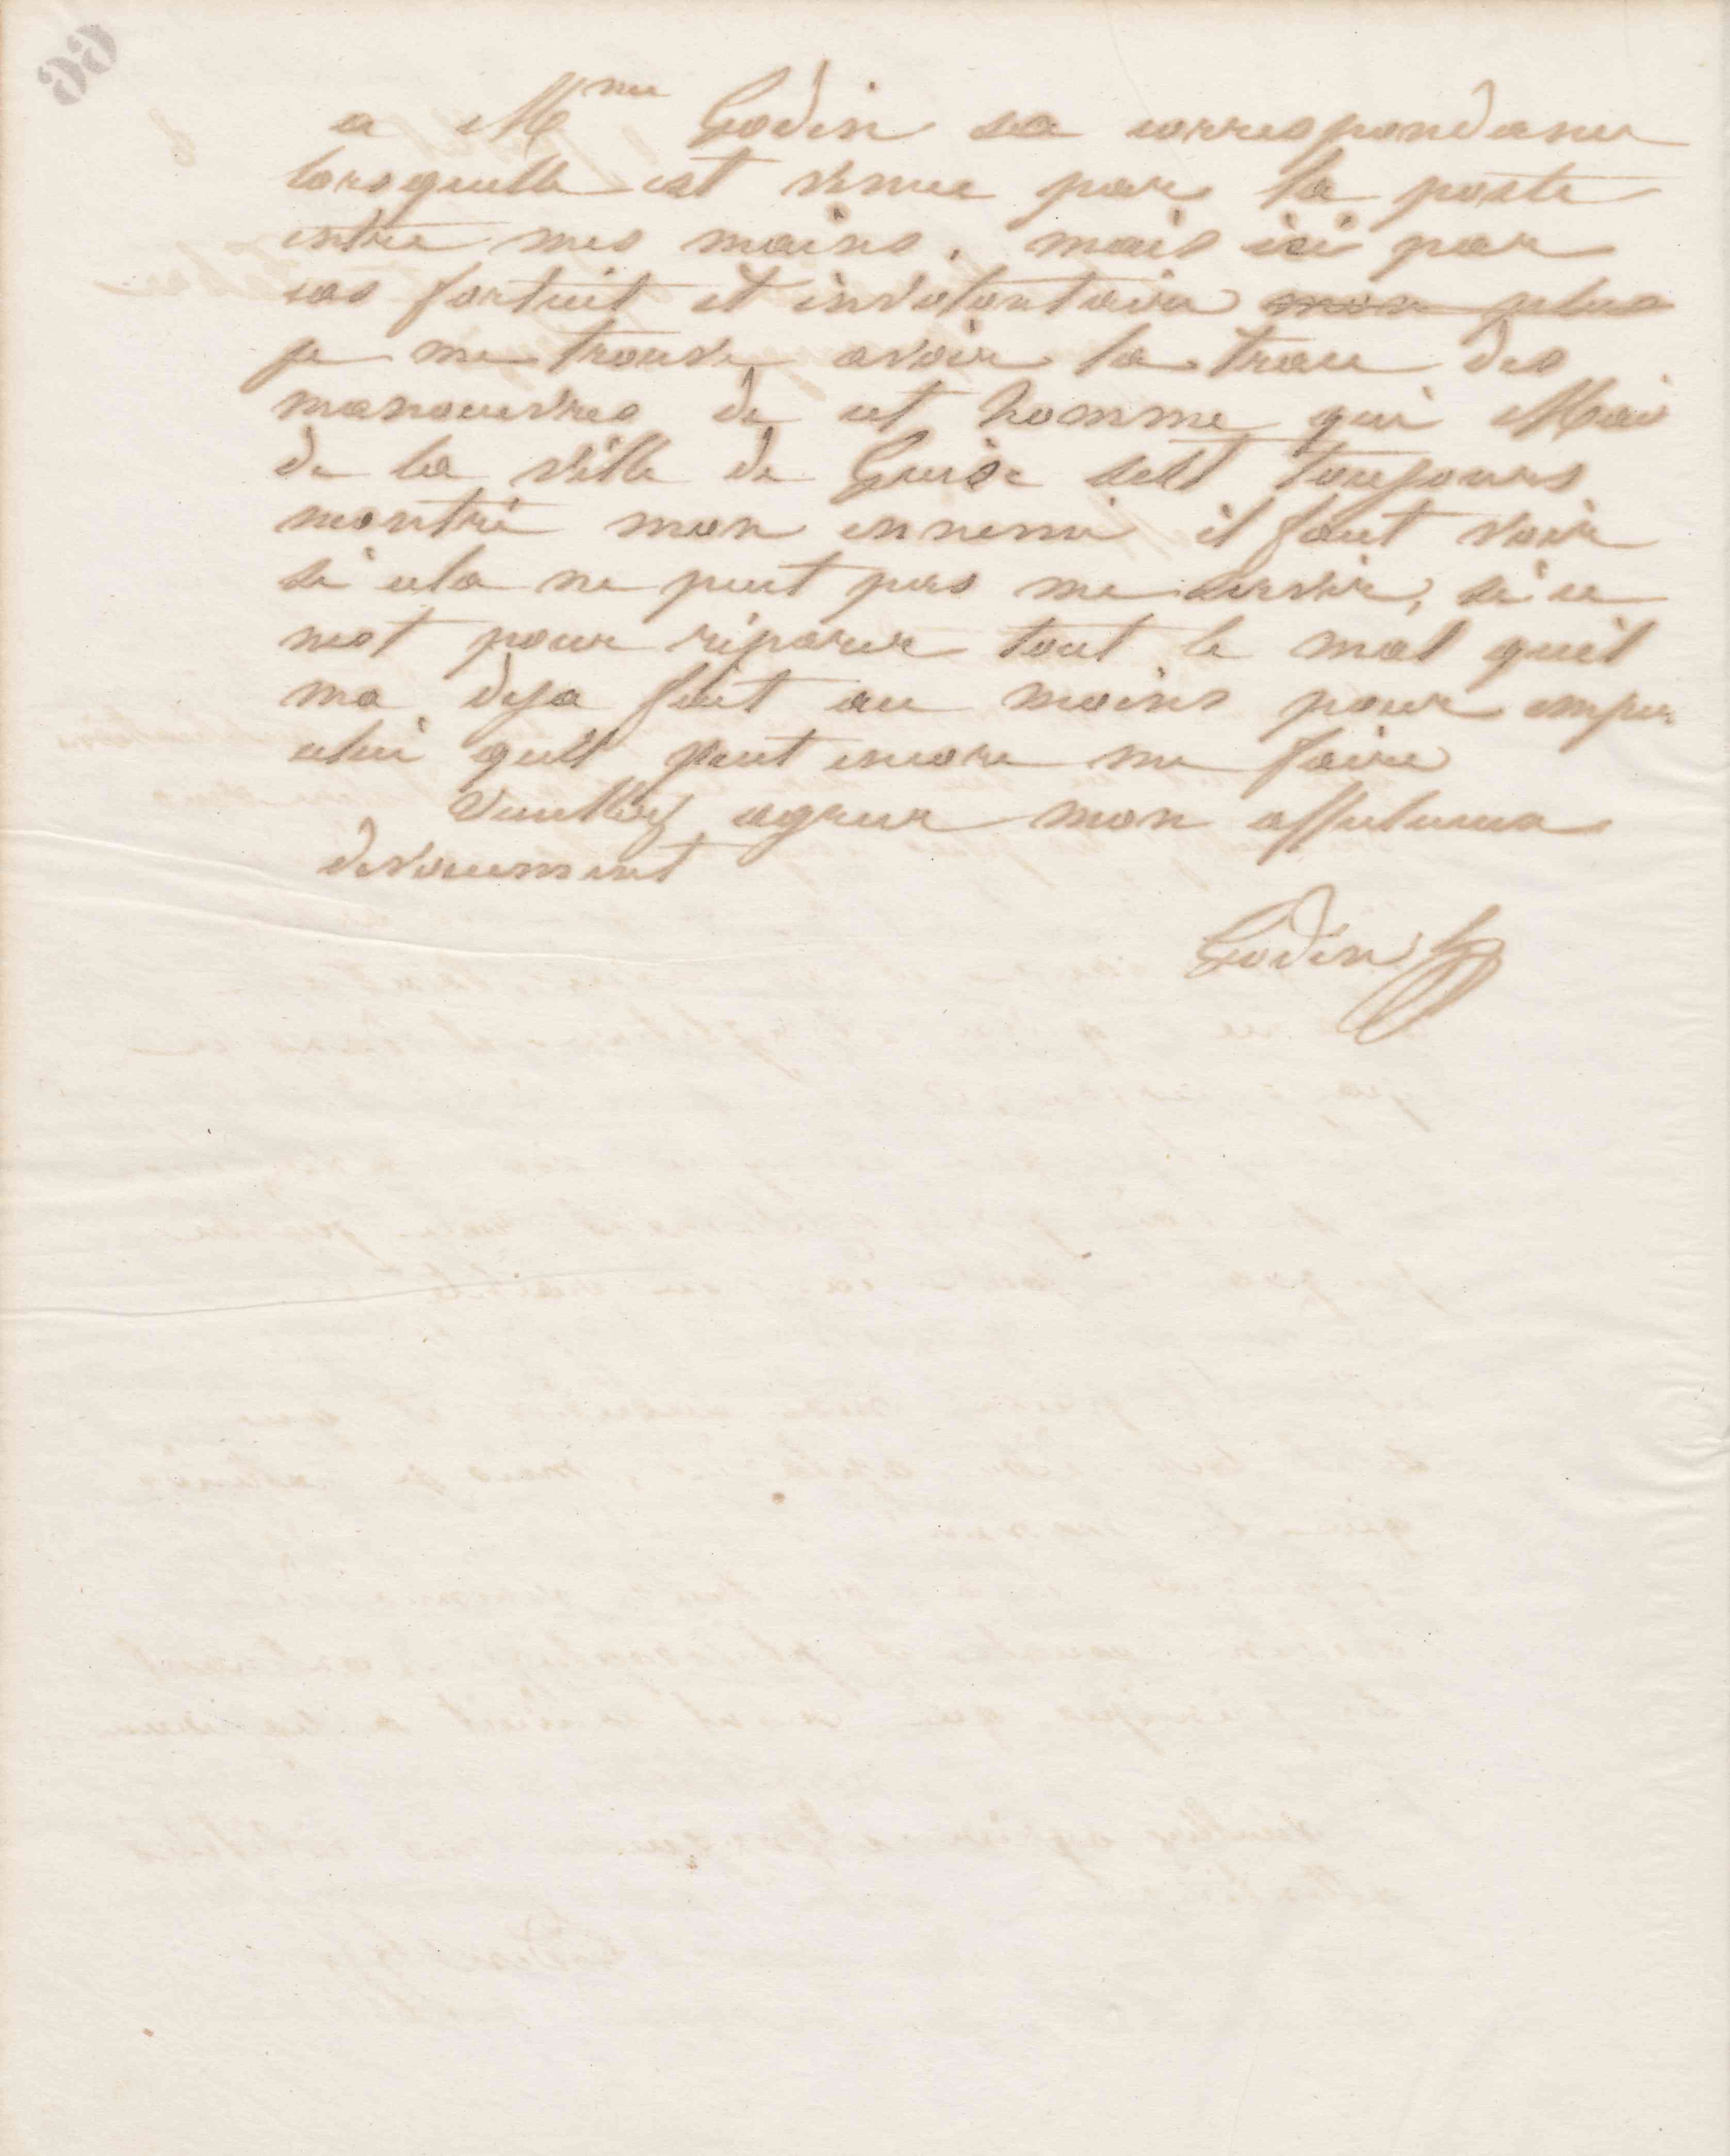 a Mme Godin sa correspondance
lorsquelle est venue par la poste
entre mes mains. mais ici par
cas fortuit et involontaire non plus
je me trouve avoir la trace des
manoeuvres de cet homme qui Maire
de la ville de Guise sest toujours
montré mon ennemi il faut voir
si cela ne peut pas me servir, si ce
nest pour réparer tout le mal quil
ma deja fait au moins pour
celui quil peut encore me faire
Veuillez agreer mon affectueux
devouement
Godin